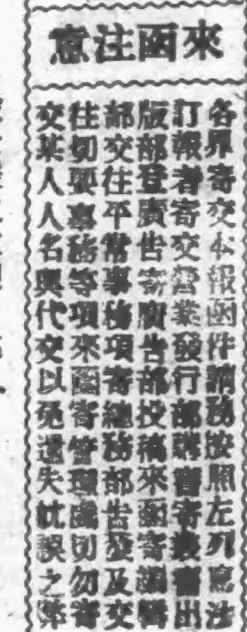 來函注意
各界寄交本報函件請務按照左列寫法
訂報者寄交營業發行部購書寄叢書出
版部登廣告寄廣告部投稿來函寄編輯
部交往平常事務項寄總務部告發及交
往切要事務等項來函寄管理處切勿寄
交某人人名與代交以免遺失耽誤之弊